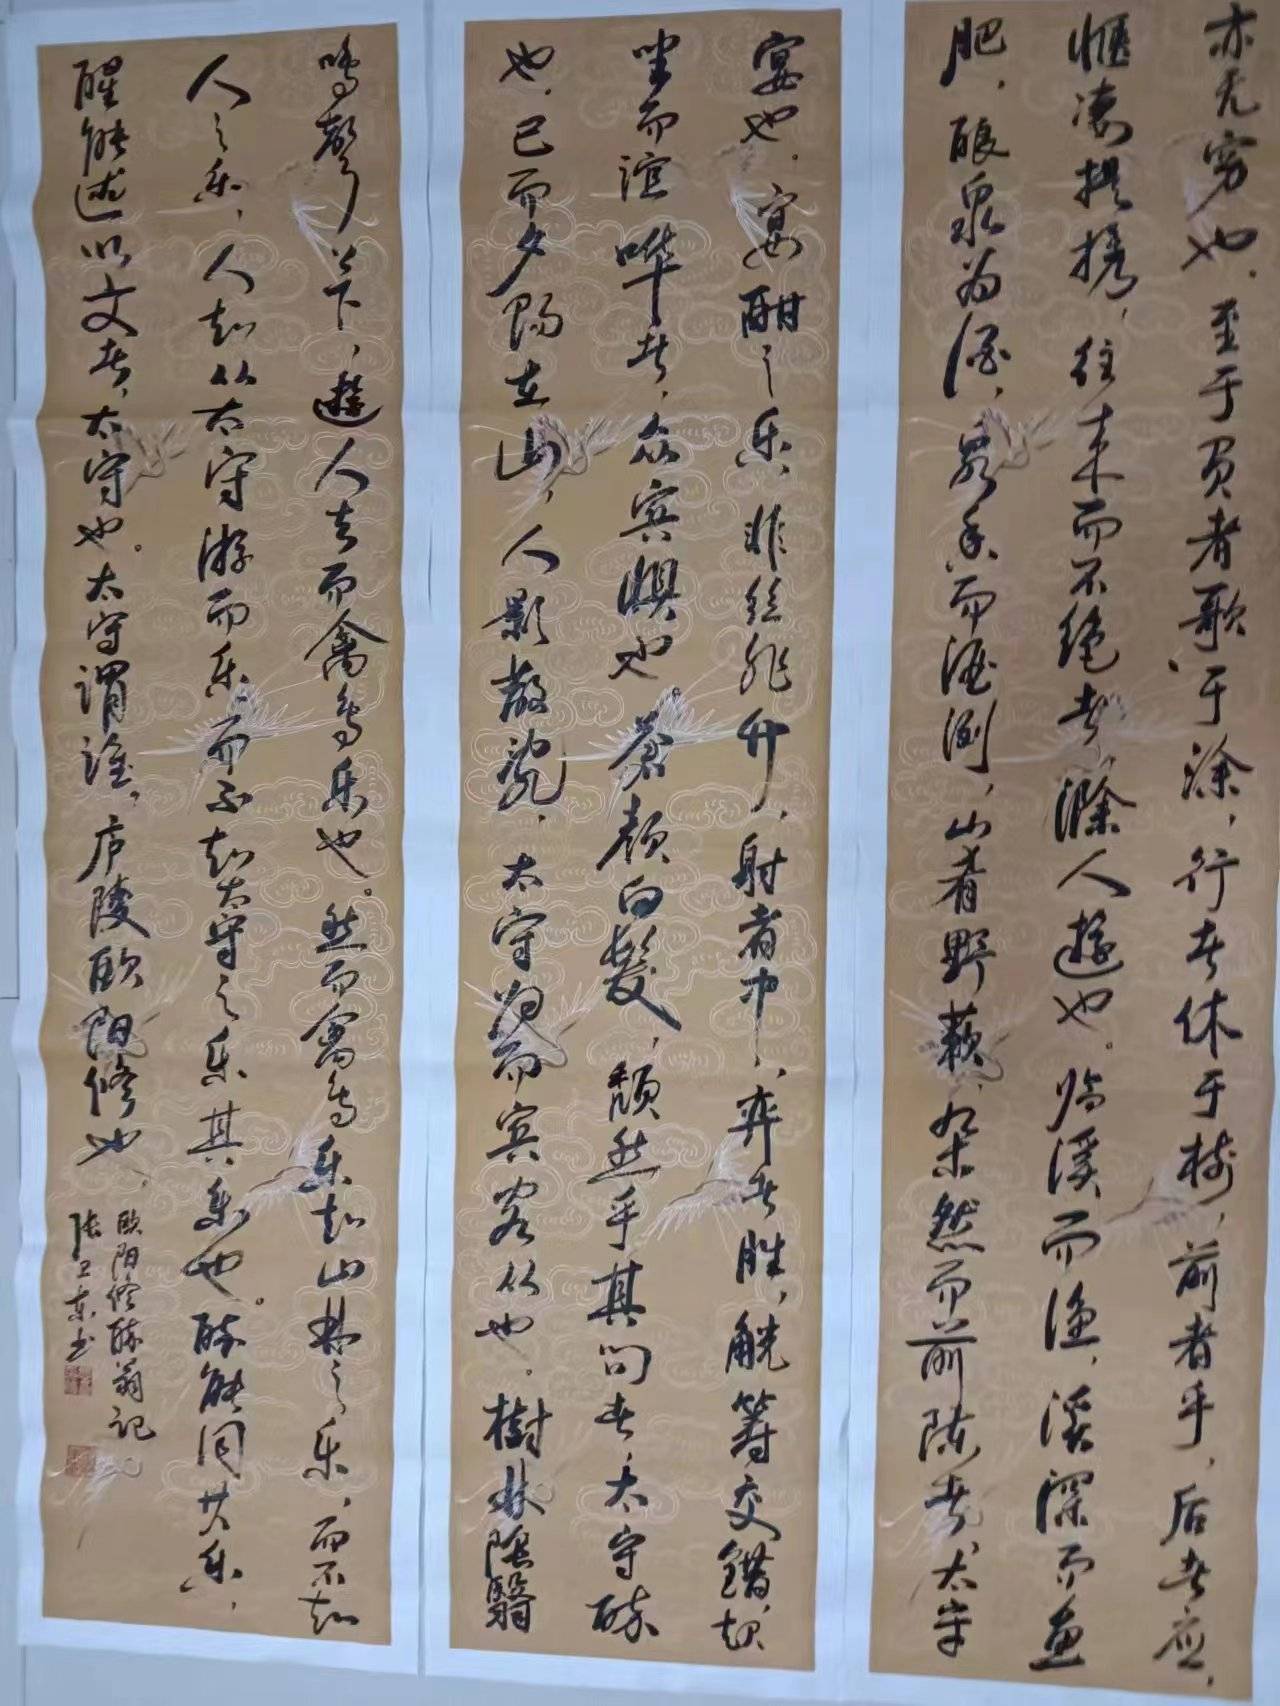 亦无穷也。至于负者歌于涂，行者休于树，前者乎，后者应，
伛凄提携，往来而不绝者，滁人游也。临溪而渔，溪深而鱼
肥，酿泉为酒，泉香而酒洌，山肴野蔌，杂然而前陈者，太守
宴也。宴酣之乐，非丝非竹，射者中，弈者胜，觥筹交错，起
坐而諠哗者，众宾惧也。苍颜白发，颓然乎其间者，太守醉
也。已而夕阳在山，人影散乱，太守归而宾客从也。樹林阴翳，
鸣声上下，遊人去而禽鸟乐也。然而禽鸟乐知山林之乐，而不知
人之乐，人知从太守游而乐，而不知太守之乐其乐也。醉能同其乐，
醒能述以文者，太守也。太守谓谁，庐陵欧阳修也。
欧阳修醉翁记
张卫东书